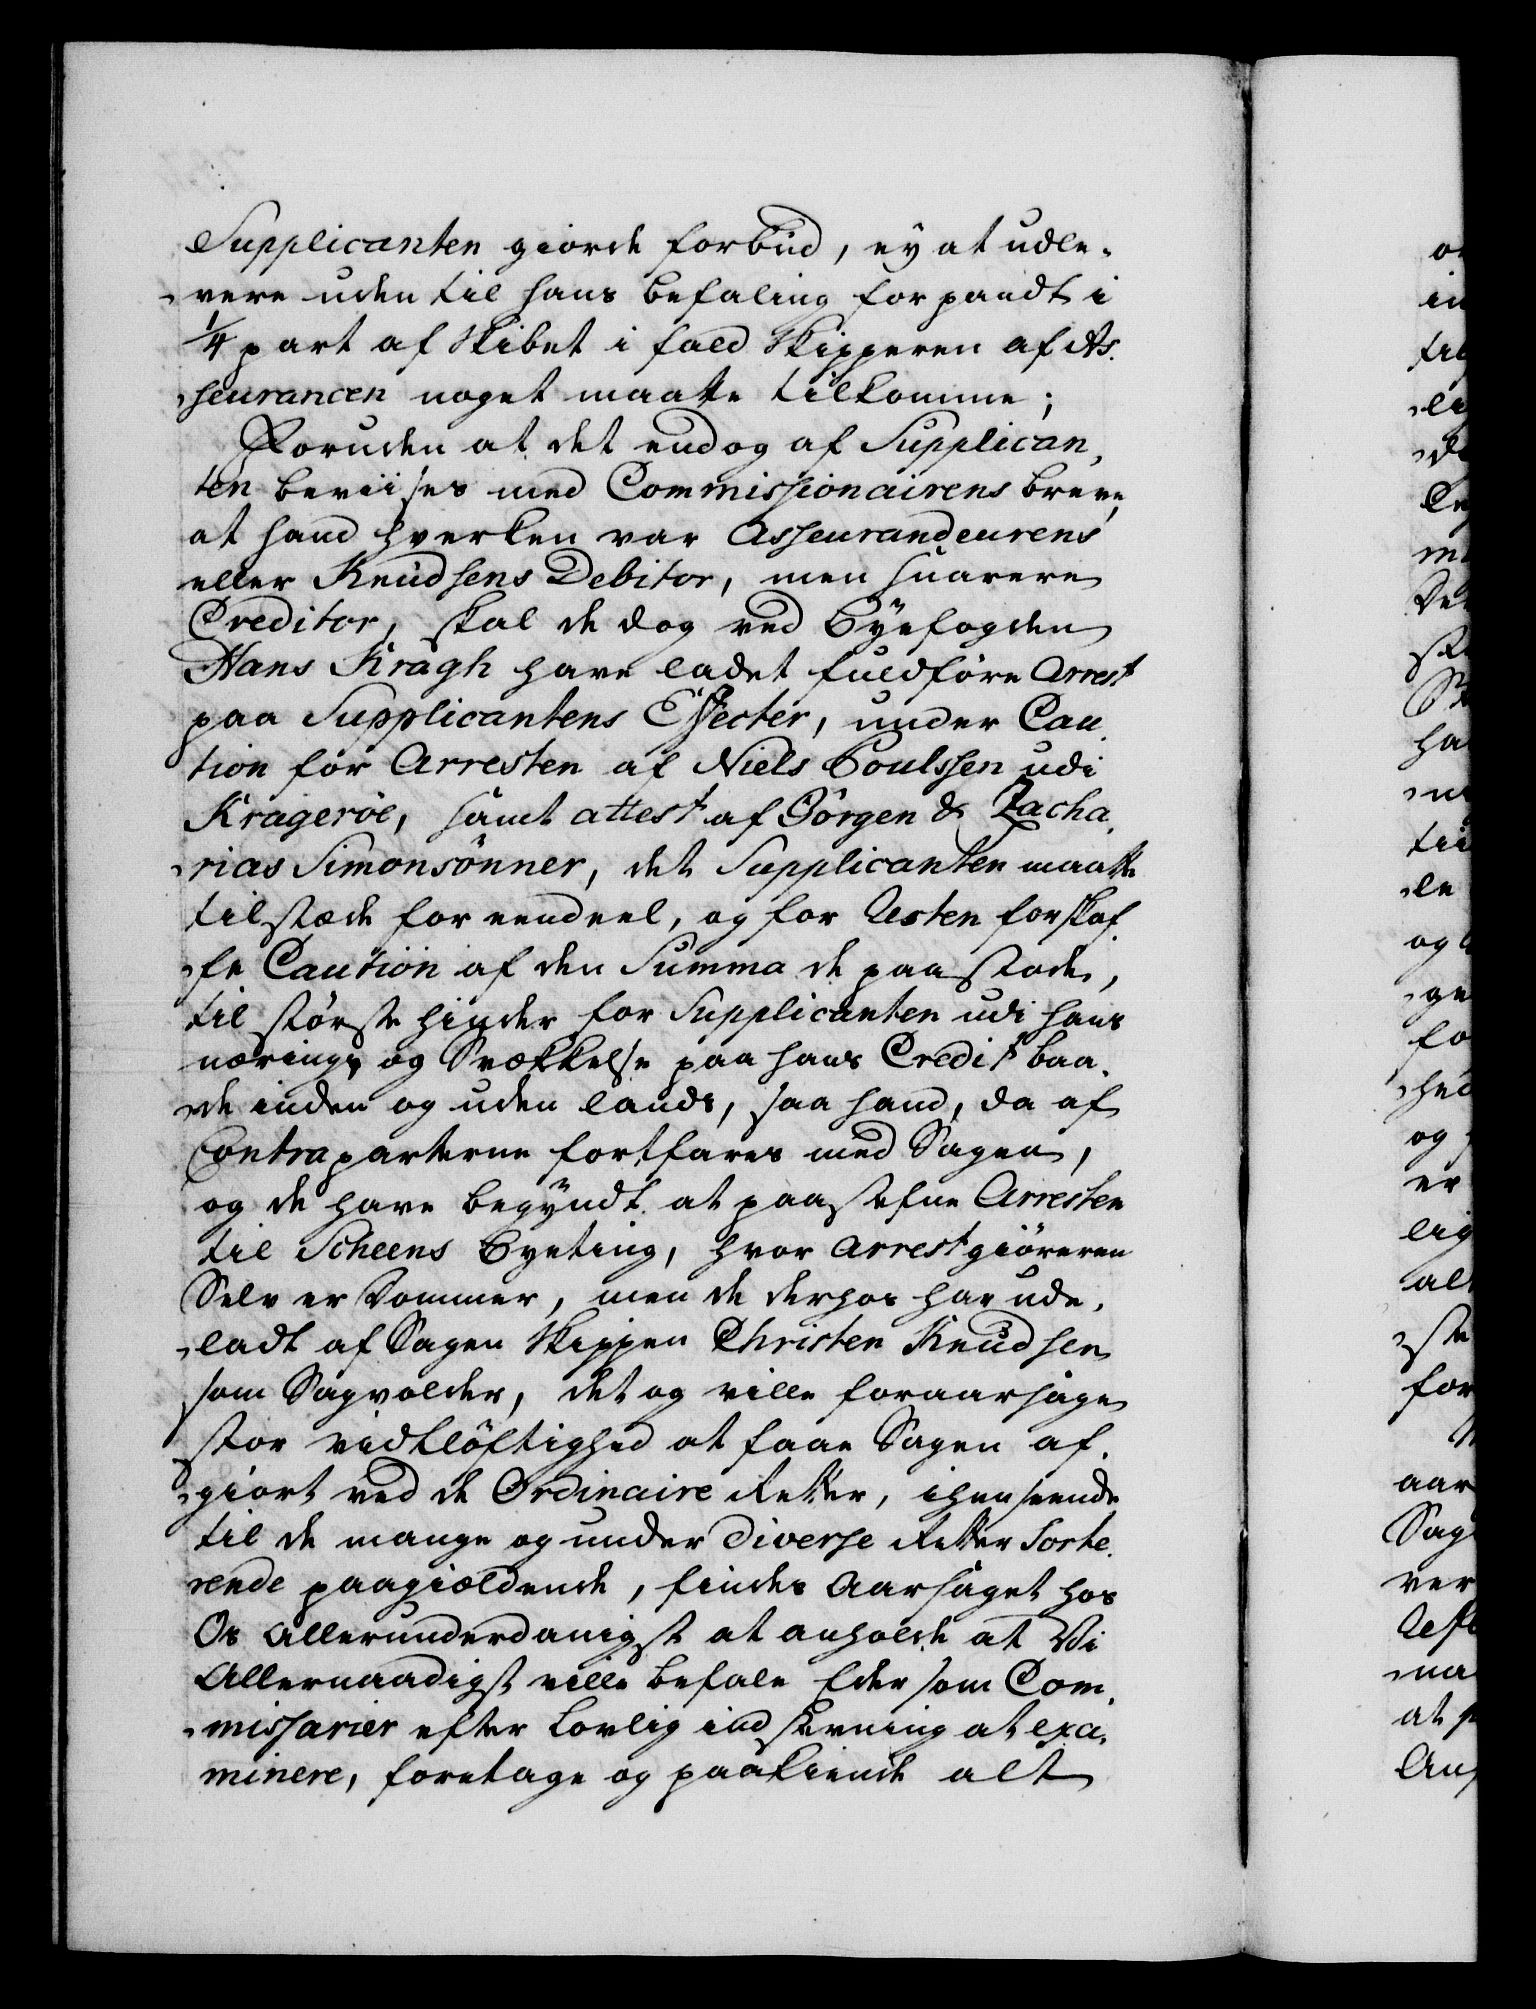 Supplicanten giorde forbud, ey at udle-
vere uden til hans befaling for pandt i
1/4 part af Skibet i fald Skipperen af As-
seurancen noget maatte tilkomme;
Foruden at det endog af Supplican-
ten beviises med Commissionairens breve,
at hand hverken var Asseurandeurens
eller Knudsens Debitor, men snarere
Creditor, skal de dog ved Byefogden
Hans Kragh have ladet fuldføre Arrest
paa Supplicantens Effecter, under Cau-
tion for Arresten af Niels Poulssen udi
Kragerøe, samt attest af Jørgen & Zacha-
rias Simonsønner, det Supplicanten maatte
tilstæde for eendeel, og for Resten forskaf-
fe Caution af den Summa de paastode,
til største hinder for Supplicanten udi hans
nærings og Svækkelse paa hans Credit baa-
de inden og uden lands, saa hand, da af
Contraparterne fortfares med Sagen,
og de have begyndt at paastefne Arresten
til Scheens Byeting, hvor Arrestgiøreren
Selv er Dommer, men de derhos har ude-
ladt af Sagen Skipper Christen Knudsen
som Sagvolder, det og ville foraarsage
stor vidtløftighed at faae Sagen af-
giort ved de Ordinaire Retter, i henseende
til de mange og under diverse Retter Sorte-
rende paagieldende, findes Aarsaget hos
Os allerunderdanigst at anholde at Vi
Allernaadigst ville befale Eder som Com-
missarier efter lovlig indstevning at exa-
minere, foretage og paakiende alt